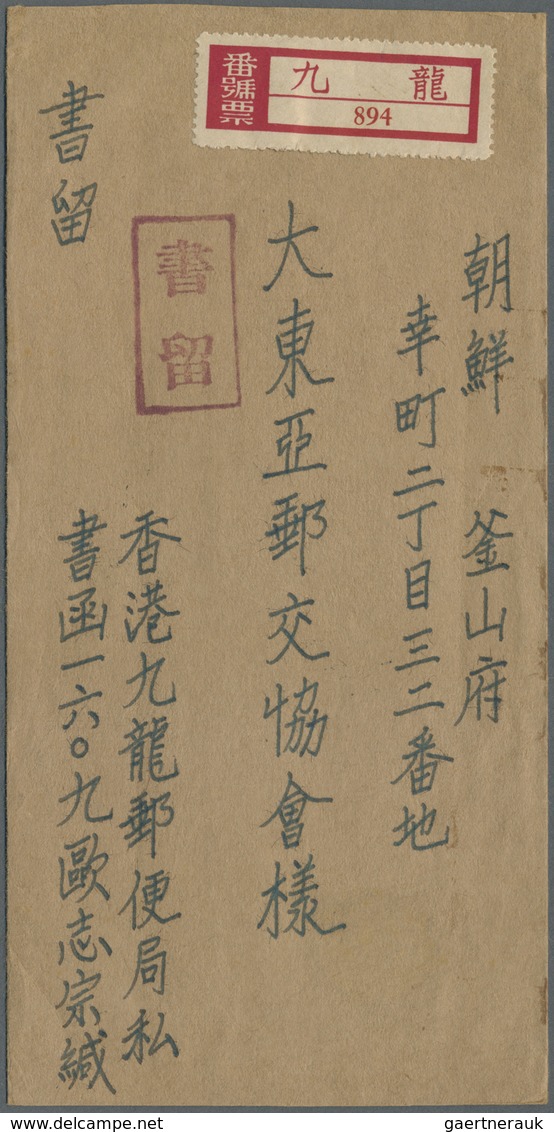 番號票
九龍
894
朝鮮 釜山府
幸町二丁目三二番地
大東亞郵交協會樣
書留
書留
香港九龍郵便局私
書函一六〇九歐志宗緘
delcampe.net
gaertnerauk